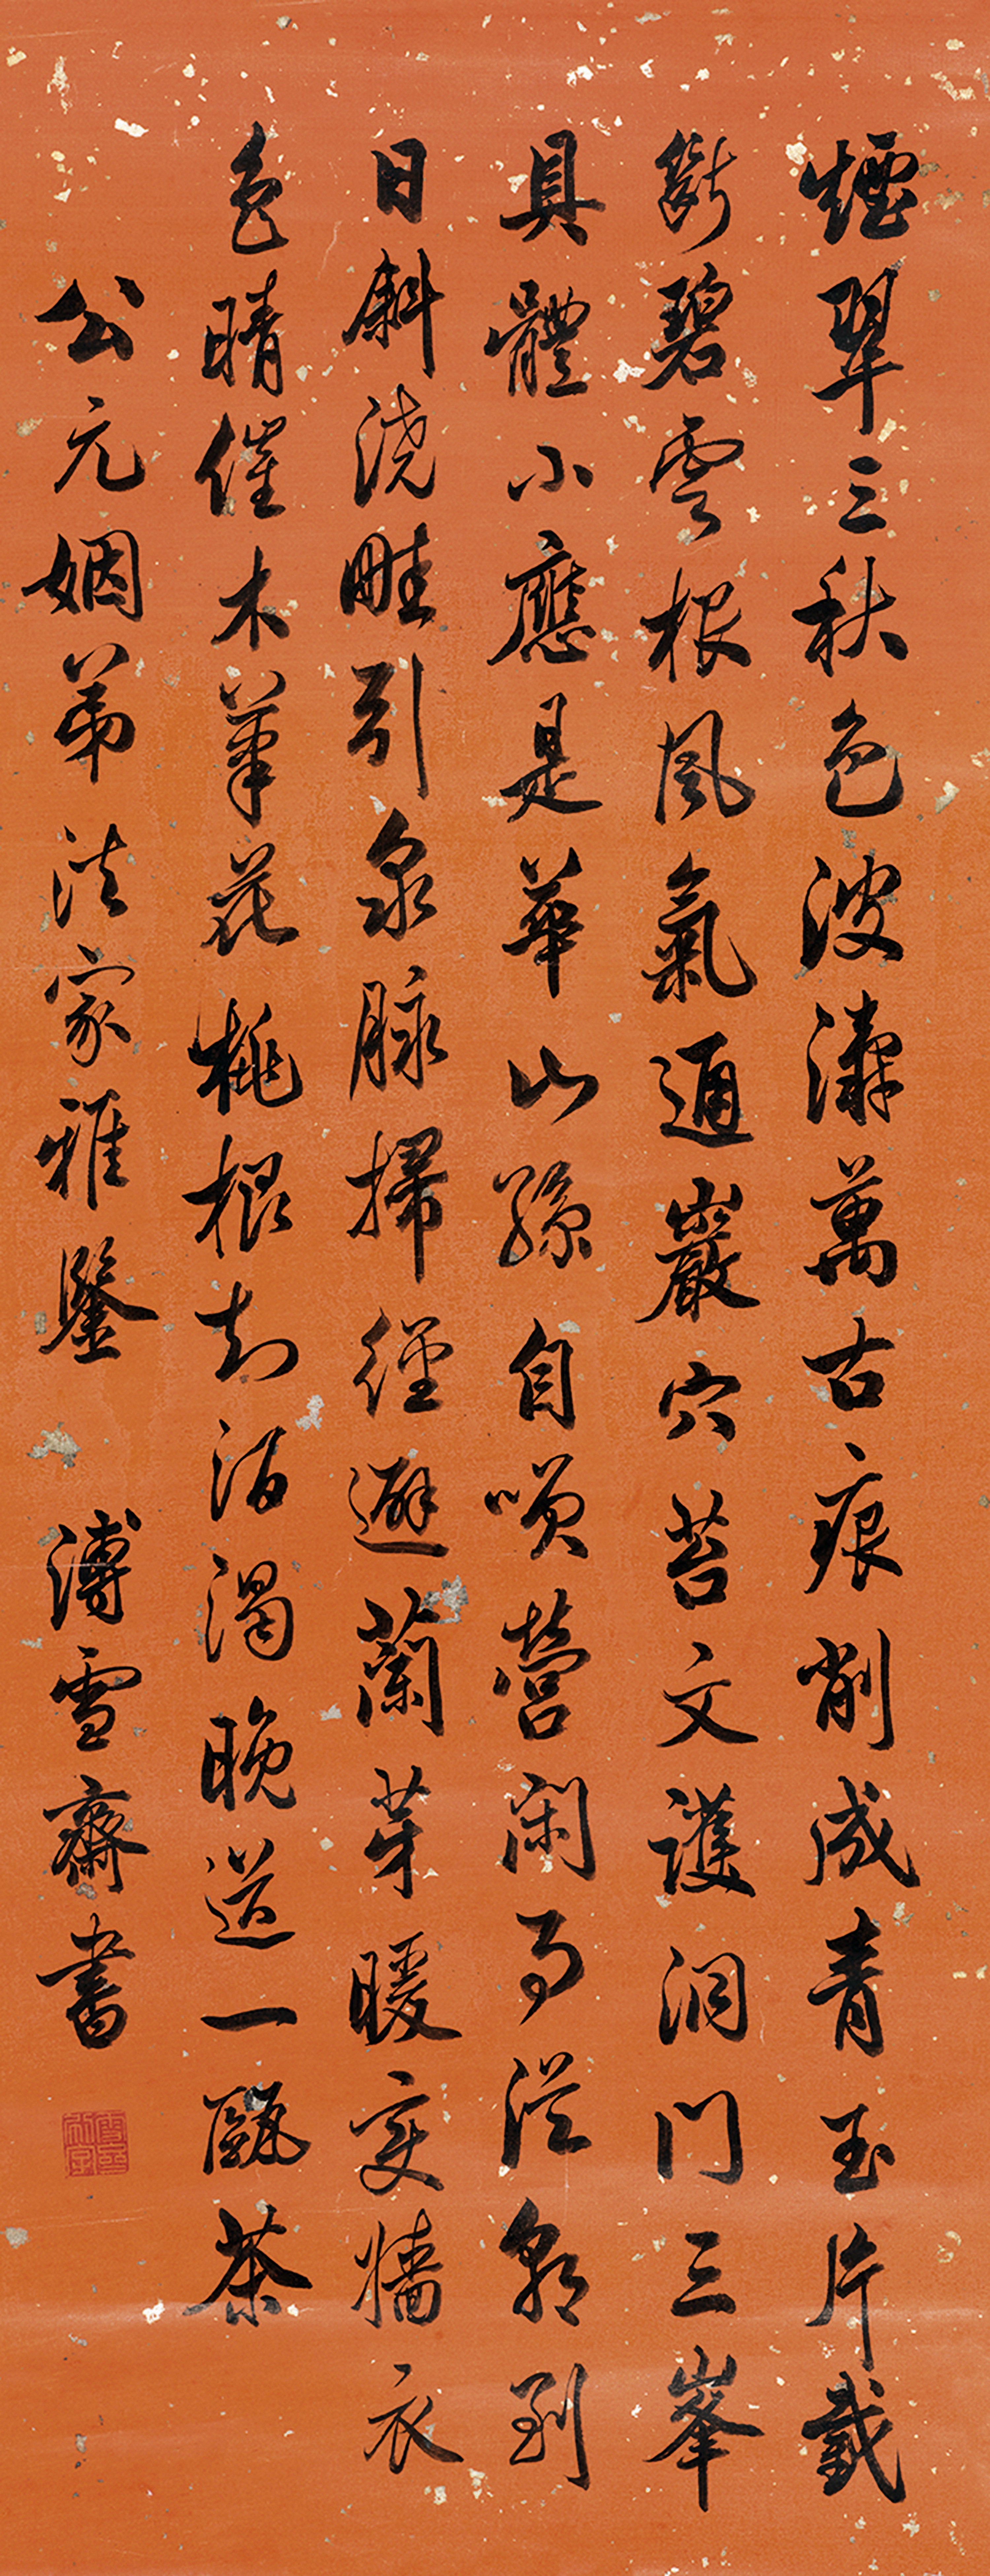 煙翠三秋色波濤萬古痕削成青玉片截
斷碧雲根風氣通巖穴苔文護洞門三峯
具體小應是華山孫自咲營閑事從朝到
日斜澆畦引泉脉掃徑避蘭芽暖變牆衣
色晴催木筆花桃根知酒渴晚送一甌茶
公元姻弟法家雅鑒 溥雪齋書